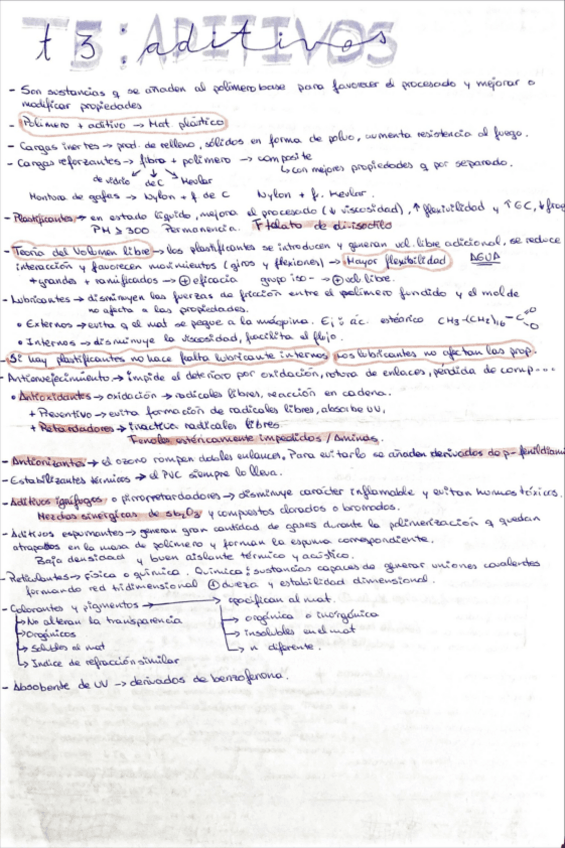 t 3: aditivos
- Son sustancias q se añaden al polímero base para favorecer el procesado y mejorar o
modificar propiedades
- Polímero + aditivo → Mat plástico
- Cargas inertes → prod. de relleno, sólidos en forma de polvo, aumenta resistencia al fuego.
- Cargas reforzantes → fibra + polímero → composite
de vidrio de C Kevlar ↳ con mejores propiedades q por separado.
Montura de gafas → Nylon + f de C Nylon + f. Kevlar.
- Plastificantes → en estado líquido, mejora el procesado (↓ viscosidad), ↑ flexibilidad y ↑ εC, ↓
PM ≥ 300 Permanencia. Ftalato de diisoctilo
- Teoría del Volumen libre → los plastificantes se introducen y generan vol. libre adicional, se reduce
interacción y favorecen movimientos (giros y flexiones) → Mayor flexibilidad AGUA
+ grandes + ramificados → ⊕ eficacia grupo iso- → ⊕ vol libre.
- Lubricantes → disminuyen las fuerzas de fricción entre el polímero fundido y el molde
no afecta a las propiedades.
• Externos → evita q el mat se pegue a la máquina. Ej: ác. esteárico CH3-(CH2)16-C O O
• Internos → disminuye la viscosidad, facilita el flujo.
- Si hay plastificantes no hace falta lubricante internos pos lubricantes no afectan las prop.
- Antienvejecimiento → impide el deterioro por oxidación, rotura de enlaces, pérdida de comp....
• Antioxidantes → oxidación → radicales libres, reacción en cadena.
+ Preventivo → evita formación de radicales libres, absorbe UV,
+ Retardadores → inactiva radicales libres
Fenoles estéricamente impedidos / Aminas.
- Antiozonizantes → el ozono rompen dobles enlaces, Para evitarlo se añaden derivados de p-fenildiami
- Estabilizantes térmicos → el PVC siempre lo lleva.
- Aditivos ignífugos o pirorretardadores → disminuye carácter inflamable y evitan humos tóxicos.
Mezclas sinérgicas de Sb2O3 y compuestos clorados o bromados.
- Aditivos espumantes → generan gran cantidad de gases durante la polimerización q quedan
atrapados en la masa de polímero y forman la espuma correspondiente.
Baja densidad y buen aislante térmico y acústico.
- Reticulantes → física o química. Química: sustancias capaces de generar uniones covalentes
formando red tridimensional ⊕ dureza y estabilidad dimensional.
- Colorantes y pigmentos → opacifican al mat.
↳ No alteran la transparencia ↳ orgánico o inorgánico
↳ Orgánicos ↳ insolubles en el mat
↳ Solubles al mat ↳ n diferente.
↳ Índice de refracción similar
- Absobente de UV → derivados de benzofenona.